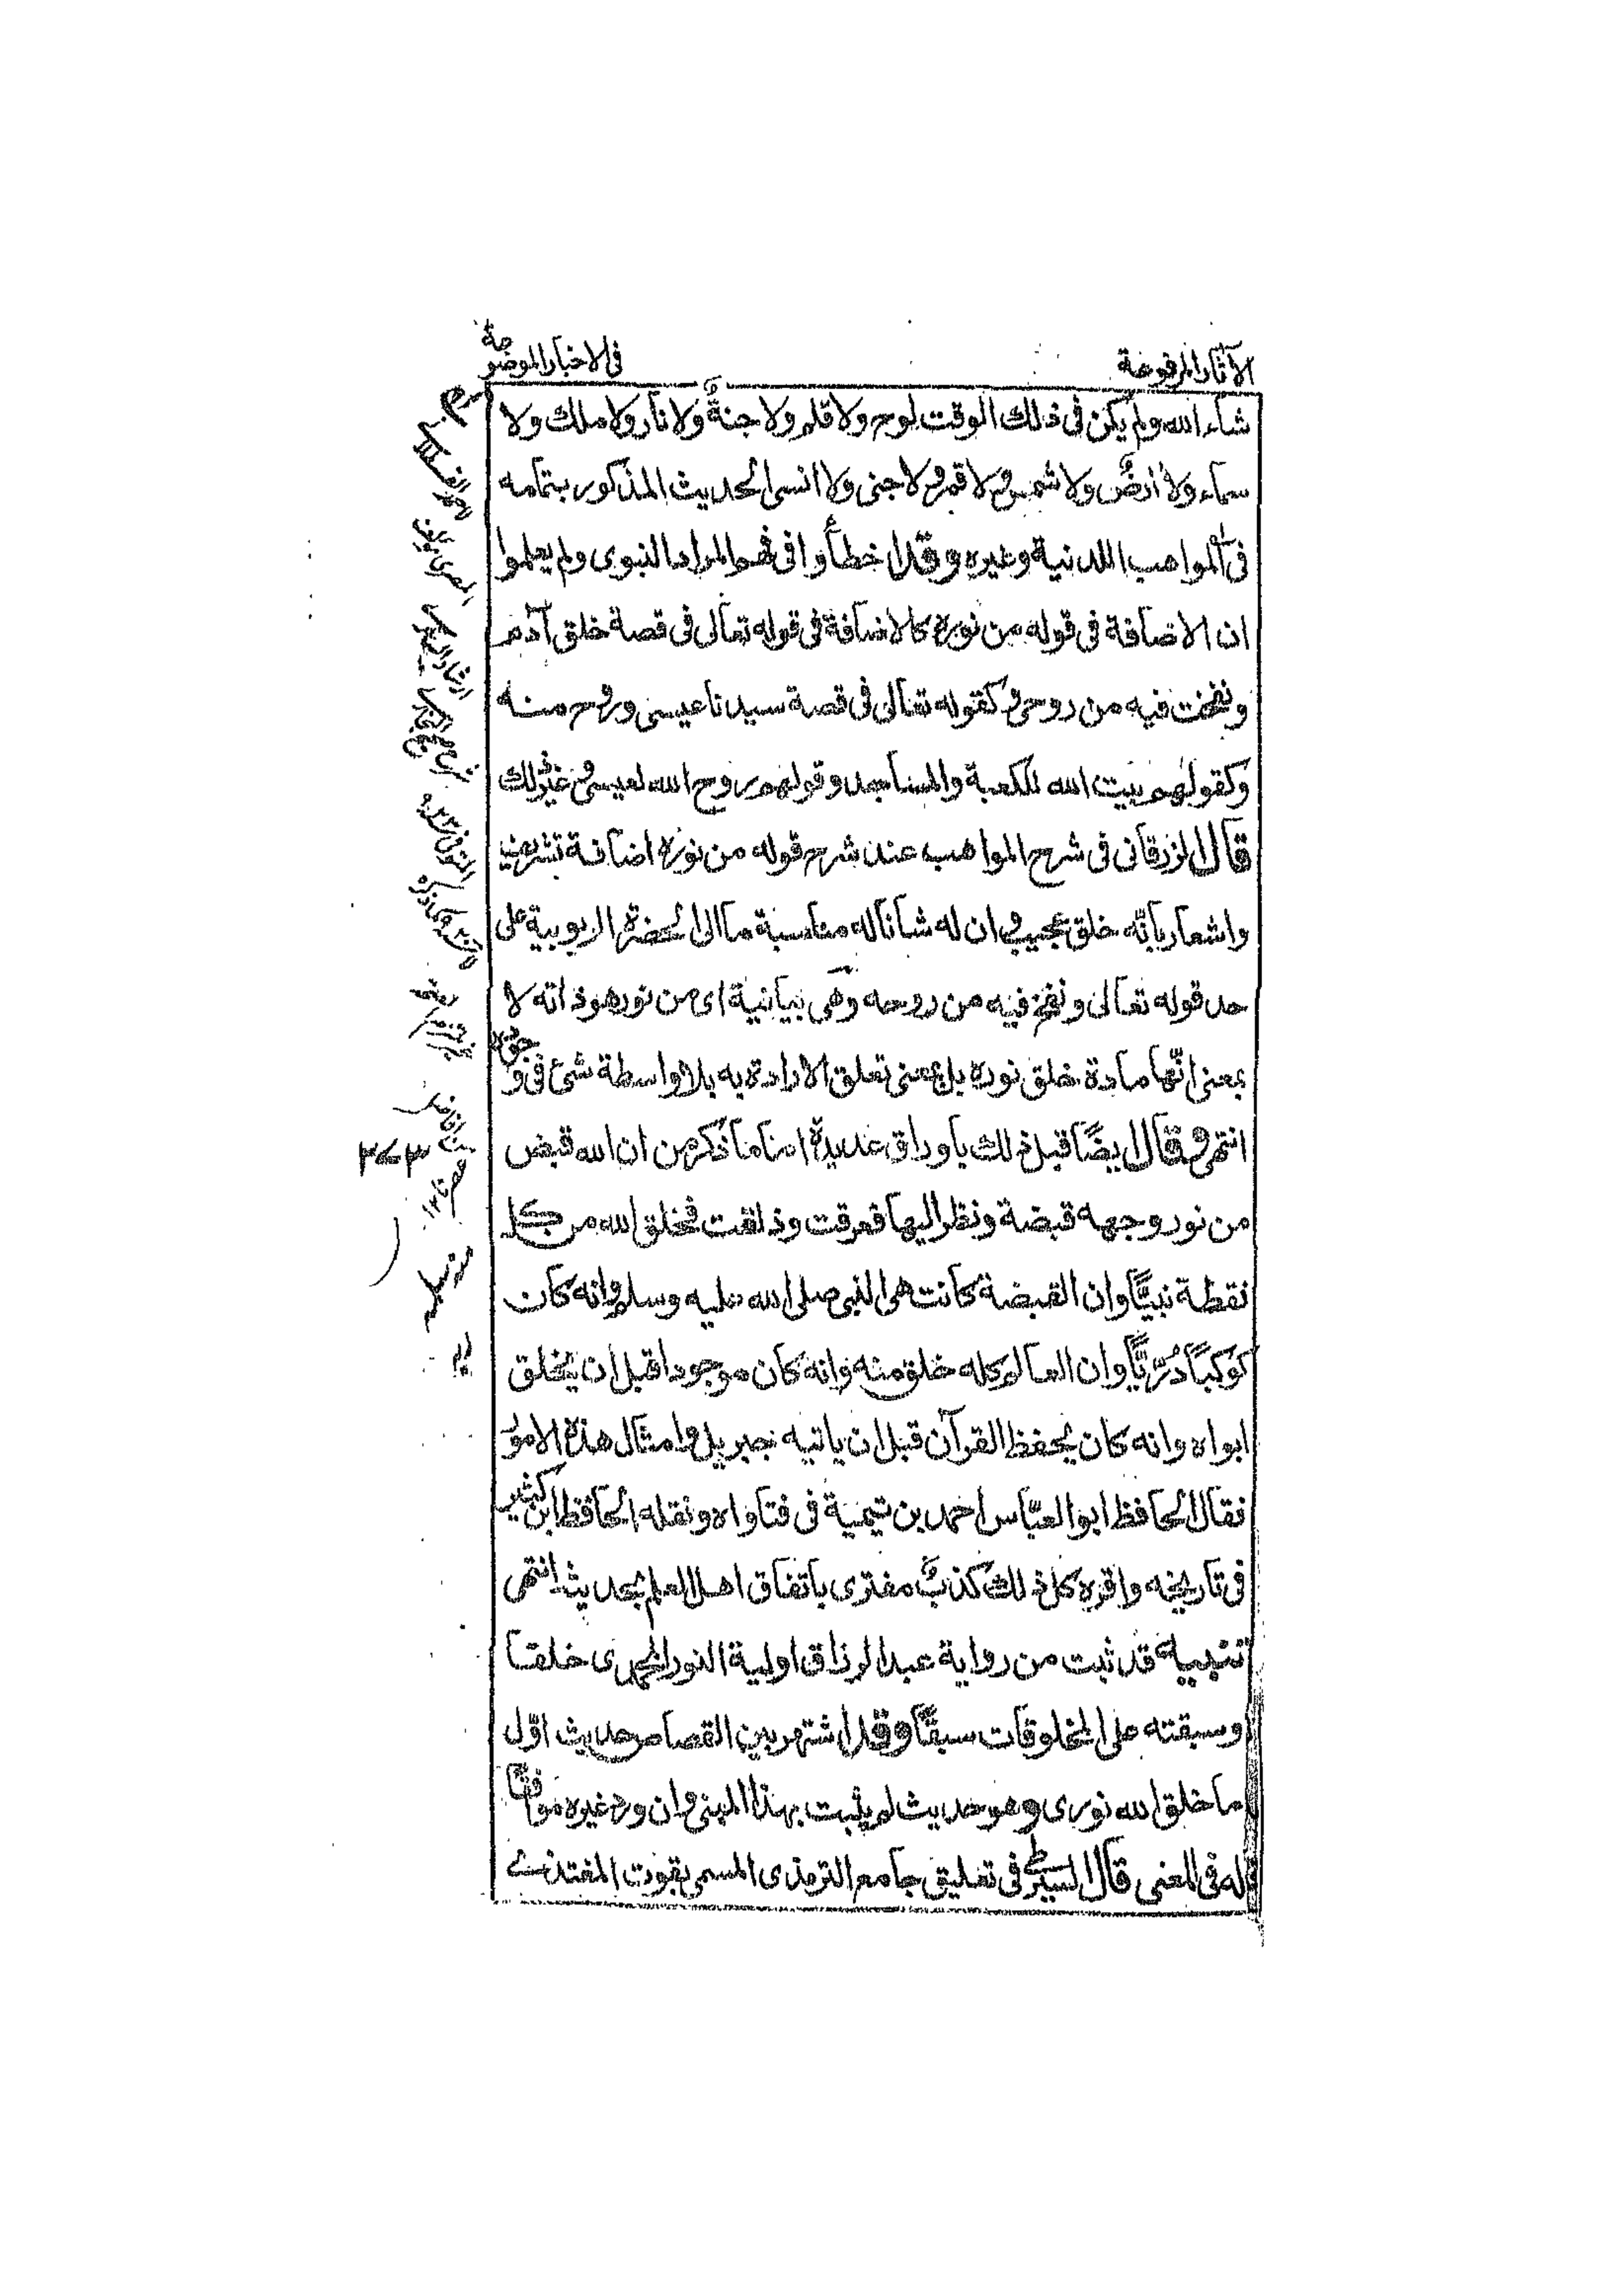 الآثار المرفوعة
فى الاخبار الموضوعة
شاء الله ولم يكن فى ذلك الوقت لوح ولا قلم ولا جنةٌ ولا نار ولا ملك ولا
سماء ولا ارضٌ ولا شمس ولا قمر ولا جنى ولا انسى الحديث المذكور بتمامه
فى المواهب اللدنية وغيره وقد اخطأوا فى فهم المراد النبوى ولم يعلموا
ان الاضافة فى قوله من نوره كالاضافة فى قوله تعالى فى قصة خلق آدم
ونفخت فيه من روحى وكقوله تعالى فى قصة سيدنا عيسى وروح منه
وكقولهم بيت الله للكعبة والمساجد وقولهم روح الله لعيسى وغير ذلك
قال الزرقانى فى شرح المواهب عند شرح قوله من نوره اضافة تشريف
واشعار بانّه خلق عجيب وان له شانا له مناسبة ما الى الحضرة الربوبية على
حد قوله تعالى ونفخ فيه من روحه وهى بيانية اى من نور هو ذاته لا
بمعنى انّها مادة خلق نوره بل بمعنى تعلق الارادة به بلا واسطة شئ فى وجوده
انتهى وقال ايضًا قبل ذلك باوراق عديدة امّا ما ذكر من ان الله قبض
من نور وجهه قبضة ونظر اليها فعرقت وذلقت فخلق الله من كل
نقطة نبيًّا وان القبضة كانت هى النبى صلى الله عليه وسلم وانه كان
كوكبًا دُرّيًّا وان العالم كله خلق منه وانه كان موجودا قبل ان يخلق
ابواه وانه كان يحفظ القرآن قبل ان ياتيه جبريل وامثال هذه الامور
فقال الحافظ ابو العبّاس احمد بن تيمية فى فتاواه ونقله الحافظ ابن كثير
فى تاريخه واقره كل ذلك كذبٌ مفترى باتفاق اهل العلم بحديثه انتهى
تنبيه قد ثبت من رواية عبد الرزاق اولية النور المحمدى خلقا
وسبقته على المخلوقات سبقًا وقد اشتهر بين القصاص حديث اوّل
ما خلق الله نورى وهو حديث لم يثبت بهذا المبنى وان ورد غيره موافقًا
له فى المعنى قال السيوطى فى تعليق جامع الترمذى المسمى بقوت المغتذى